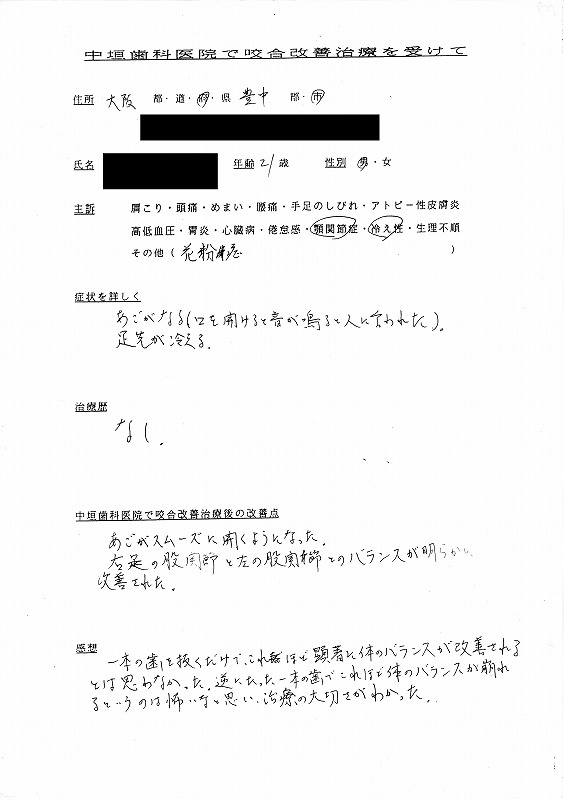 中垣歯科医院で咬合改善治療を受けて
住所 大阪 都・道・府・県 豊中 郡・市
氏名 年齢 21 歳 性別 男・女
主訴 肩こり・頭痛・めまい・腰痛・手足のしびれ・アトピー性皮膚炎
高低血圧・胃炎・心臓病・倦怠感・顎関節症・冷え性・生理不順
その他(花粉症)
症状を詳しく
あごがなる(口を開けると音が鳴ると人に言われた)。
足先が冷える。
治療歴
なし.
中垣歯科医院で咬合改善治療後の改善点
あごがスムーズに開くようになった.
右足の股関節と左の股関節とのバランスが明らかに
改善された.
感想
一本の歯を抜くだけで、これほど顕著に体のバランスが改善される
とは思わなかった. 逆にたった一本の歯でこれほど体のバランスが崩れ
るというのは怖いなと思い、治療の大切さがわかった.